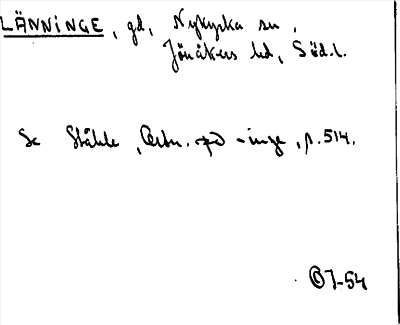 LÄNNINGE, gd, Nykyrka sn,
Jönåkers hd, Söd.l.
Se Ståhle, Ortn. på -inge, p. 514.
OJ-54